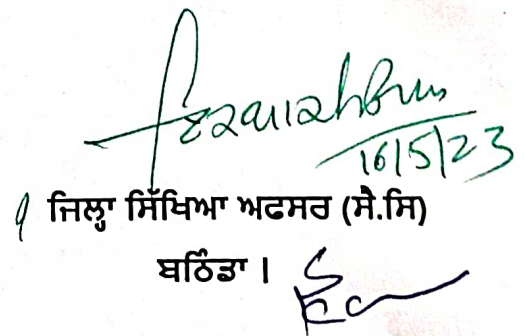 16/5/23
ਜਿਲ੍ਹਾ ਸਿੱਖਿਆ ਅਫਸਰ (ਸੈ.ਸਿ)
ਬਠਿੰਡਾ ।